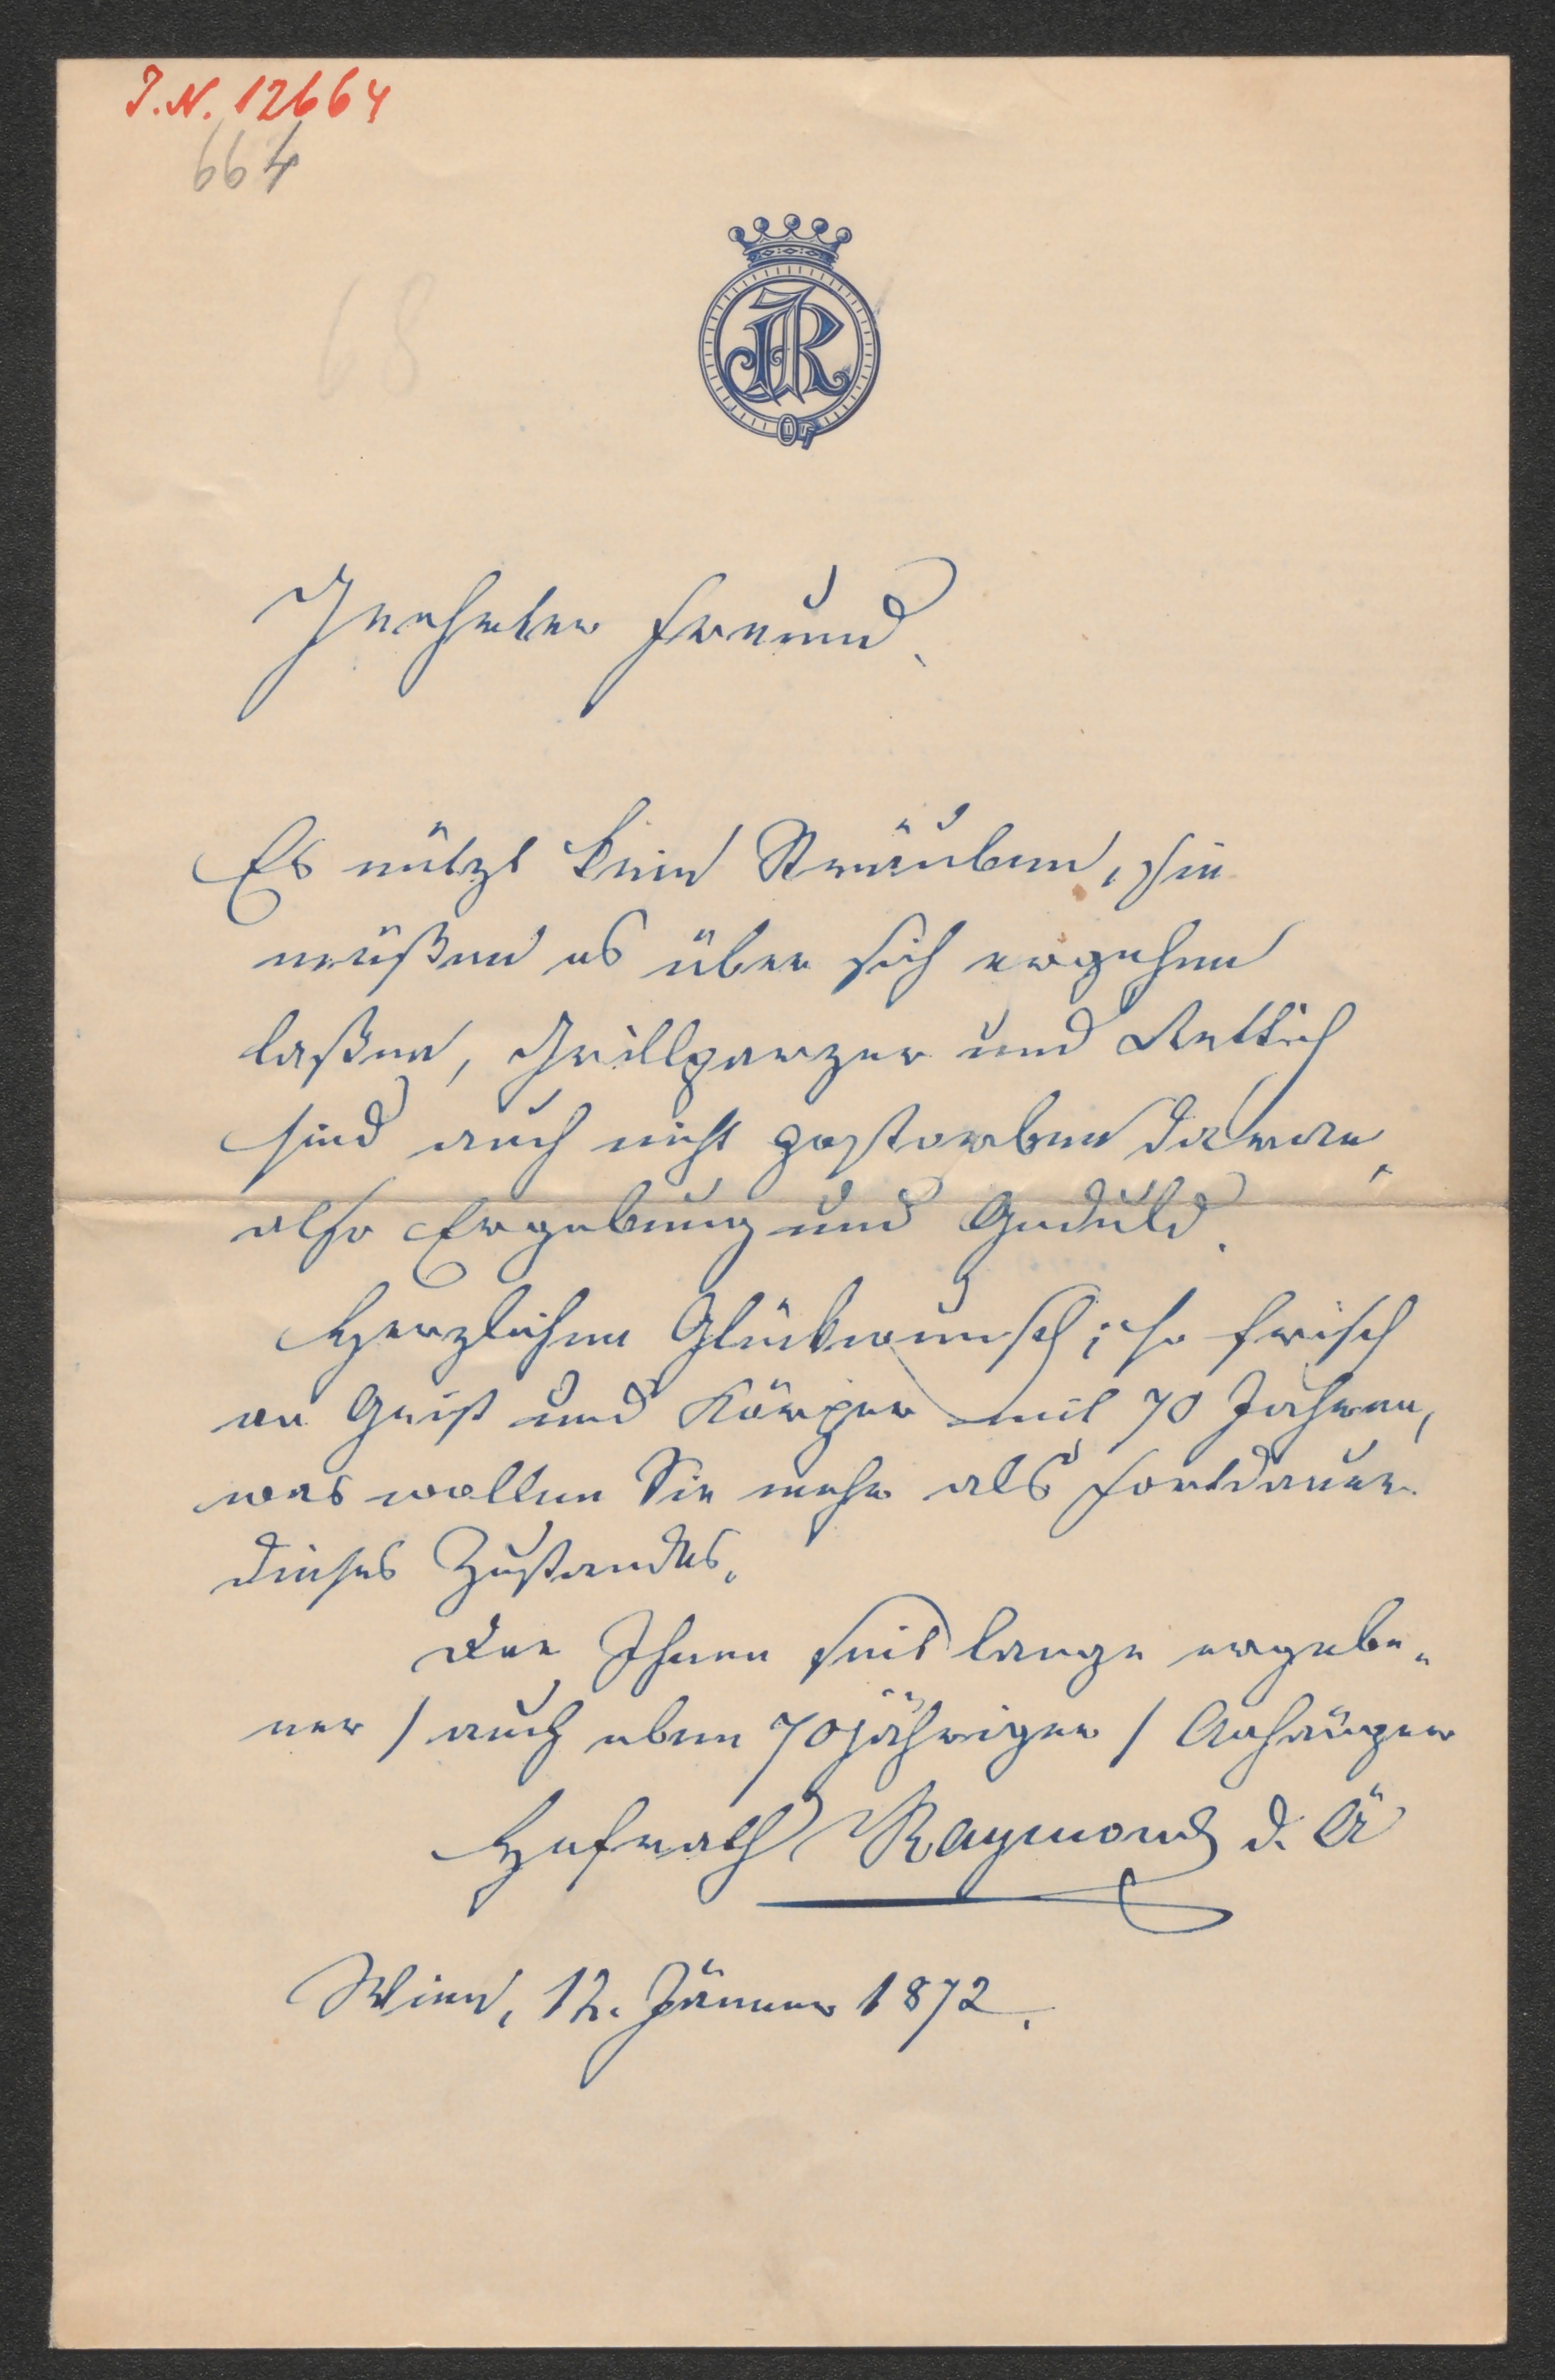 J.N. 12664
664
68
JR
Geehrter Freund.
Es nützt kein Sträuben, Sie
müßen es über sich ergehen
laßen, Grillparzer und Rettich
sind auch nicht gestorben daran,
also Ergebung und Geduld.
Herzlichen Glückwunsch; so frisch
an Geist und Körper mit 70 Jahren,
was wollen Sie mehr als Fortdauer
dieses Zustandes.
Der Ihnen seit lange ergebe„
ner / auch eben 70jähriger / Anhänger
Hofrath Raymond d. Ä
Wien, 12. Jänner 1872.